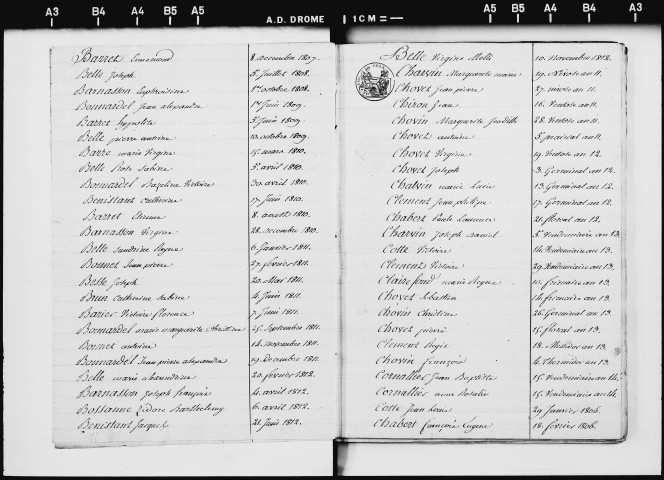 A3 B4 A4 B5 A5 A.D. DROME 1CM= A5 B5 A4 B4 A3
Barret Emerand 8 decembre 1807.
Belle Joseph 5 Juillet 1808.
Barnasson Euphrosine 1er octobre 1808.
Bonnardel Jean alexandre 1er Juin 1809.
Barret hypolite 3 Juin 1809.
Belle pierre antoine 10 octobre 1809.
Barre marie Virginie 15 mars 1810.
Belle Rose Sabine 5 avril 1810.
Bonnardel Victoire 30 avril 1810.
Benistant catherine 17 Juin 1810.
Barret Etienne 8 août 1810.
Barnasson Virginie 28 decembre 1810.
Belle 6 janvier 1811.
Bonnet Jean pierre 27 fevrier 1811.
Belle Joseph 20 Mai 1811.
Brun Catherine Sabine 4 Juin 1811.
Barier Victoire florence 7 Juin 1811.
Bonnardel marie marguerite Christine 25 Septembre 1811.
Bonnet antoine 14 novembre 1811.
Bonnardel Jean pierre alexandre 19 Decembre 1811.
Belle marie alexandrine 20 fevrier 1812.
Barnasson Joseph françois 4 avril 1812.
Bossanne Isidore Barthelemy 6 avril 1812.
Benistant Jacques 21 Juin 1812.
Belle Virginie 10 Novembre 1812.
Charvin Marguerite marie 19 Nivose an 11.
Chovet Jean pierre 27 nivose an 11.
Chiron Jean 16 Ventose an 11.
Chovin Marguerite Judith 28 Ventose an 11.
Chovet antoine 5 prairial an 11.
Chovet Virginie 19 Ventose an 12.
Chovet Joseph 3 Germinal an 12.
Chalvin marie Lucie 13 Germinal an 12.
Clement Jean philipe 17 Germinal an 12.
Chabert Paule Laurence 21 floreal an 12.
Charvin Joseph Daniel 5 Vendemiaire an 13.
Cotte Victoire 14 Vendemiaire an 13.
Clement Victoire 29 Vendemiaire an 13.
Clairefond marie Reyne 10 frimaire an 13.
Chovet Sebastien 14 frimaire an 13.
Chovin Christine 26 Germinal an 13.
Chovet pierre 15 floreal an 13.
Clement 18 Messidor an 13.
Chovin françois 4 Thermidor an 13.
Cornallier Jean Baptiste 15 Vendemiaire an 14.
Cornallier anne Natalie 15 Vendemiaire an 14.
Cotte Jean Louis 29 Janvier 1806.
Chabert françois Eugene 18 fevrier 1806.